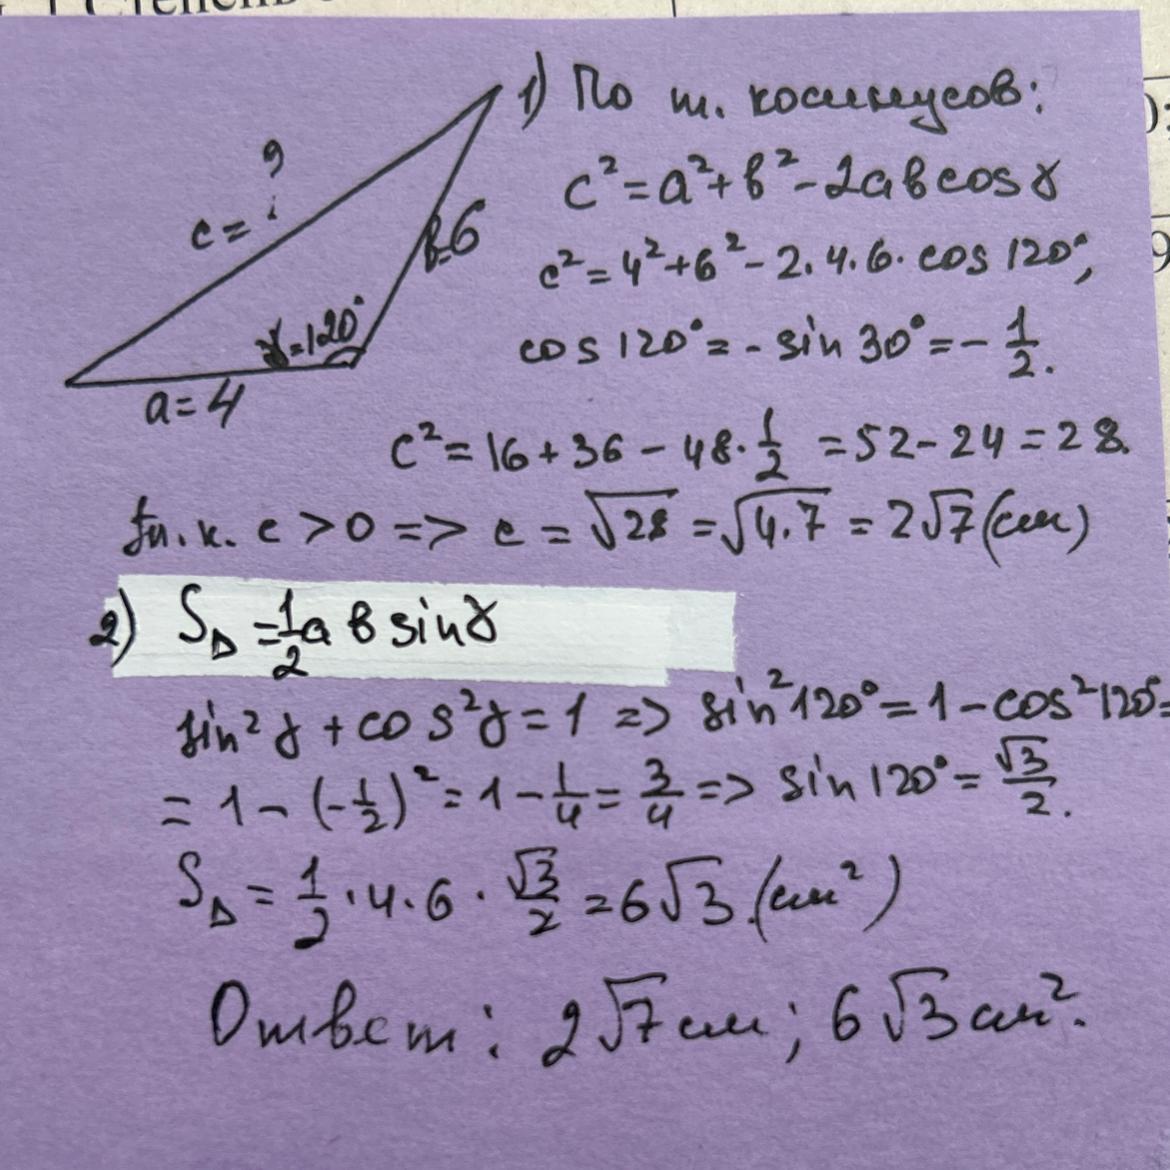 c = ?
b=6
γ=120°
a=4
1) По т. косинусов:
c² = a² + b² - 2ab cos γ
c² = 4² + 6² - 2·4·6· cos 120°,
cos 120° = - sin 30° = - 1/2.
c² = 16 + 36 - 48· 1/2 = 52 - 24 = 28.
т.к. c > 0 => c = √28 = √4·7 = 2√7 (см)
2) S△ = 1/2 a b sin γ
sin² γ + cos² γ = 1 => sin² 120° = 1 - cos² 120° =
= 1 - (-1/2)² = 1 - 1/4 = 3/4 => sin 120° = √3/2.
S△ = 1/2 · 4 · 6 · √3/2 = 6√3 (см²)
Ответ: 2√7 см; 6√3 см².